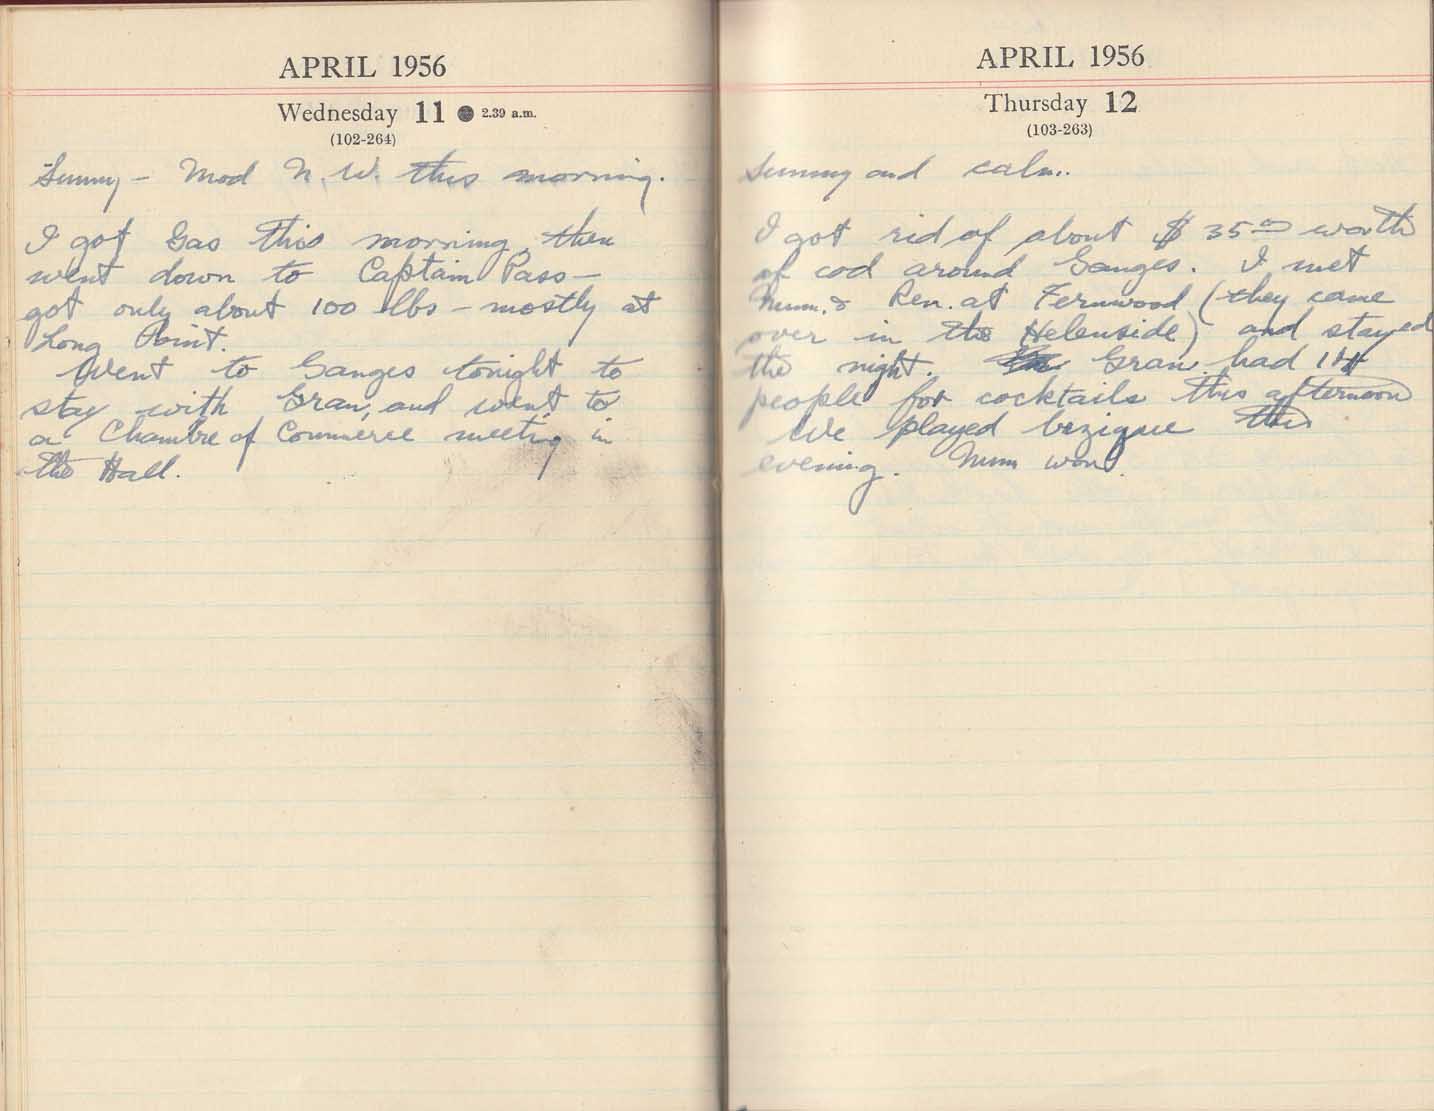 APRIL 1956
Wednesday 11 ● 2.39 a.m.
(102-264)
Sunny - Mod N.W. this morning.
I got Gas this morning, then
went down to Captain Pass -
got only about 100 lbs - mostly at
Long Point.
Went to Ganges tonight to
stay with Gran, and went to
a Chambre of Commerce meeting in
the Hall.
APRIL 1956
Thursday 12
(103-263)
Sunny and calm.
I got rid of about $35.00 worth
of cod around Ganges. I met
Mum. & Ren. at Fernwood (they came
over in the Helenside) and stayed
the night. Gran had 14
people for cocktails this afternoon
We played bezique this
evening. Mum won.